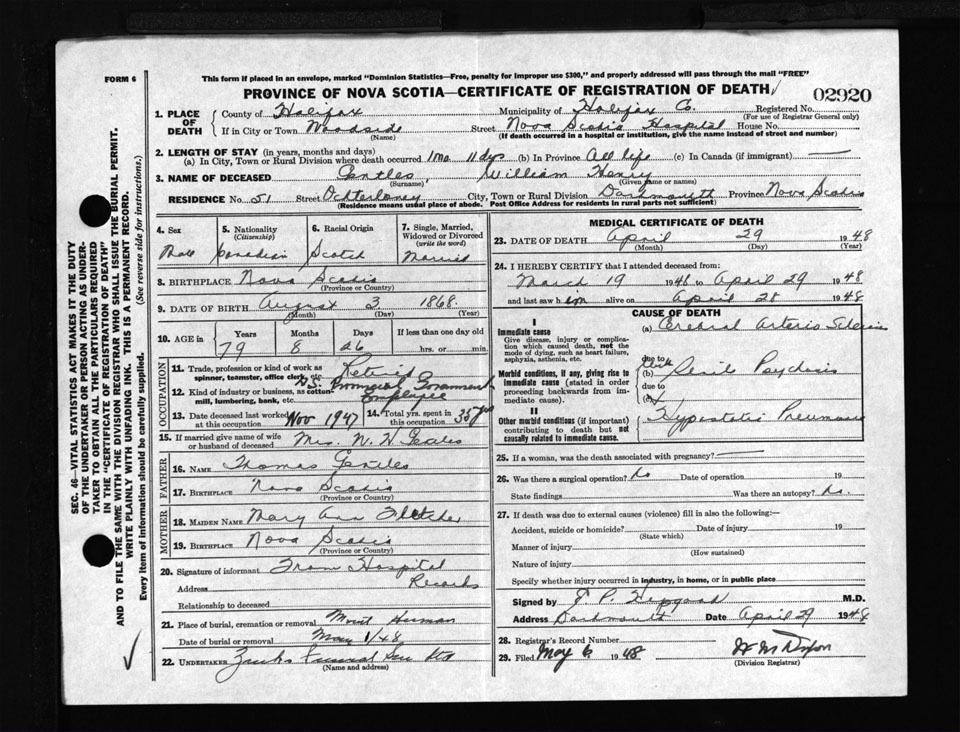 FORM 6
This form if placed in an envelope, marked "Dominion Statistics—Free, penalty for improper use $300," and properly addressed will pass through the mail "FREE"
PROVINCE OF NOVA SCOTIA—CERTIFICATE OF REGISTRATION OF DEATH
02920
1. PLACE OF DEATH County of Halifax Municipality of Halifax Co. Registered No.
(For use of Registrar General only)
If in City or Town Woodside Street Nova Scotia Hospital House No.
(Name) (If death occurred in a hospital or institution, give the name instead of street and number)
2. LENGTH OF STAY (in years, months and days)
(a) In City, Town or Rural Division where death occurred 1 mo. 11 dys (b) In Province All life (c) In Canada (if immigrant) —
3. NAME OF DECEASED Gentles, William Henry
(Surname) (Given name or names)
RESIDENCE No 51 Street Ochterloney City, Town or Rural Division Dartmouth Province Nova Scotia
(Residence means usual place of abode. Post Office Address for residents in rural parts not sufficient)
4. Sex 5. Nationality (Citizenship) 6. Racial Origin 7. Single, Married, Widowed or Divorced (write the word)
Male Canadian Scotch Married
8. BIRTHPLACE Nova Scotia
(Province or Country)
9. DATE OF BIRTH August 3 1868
(Month) (Day) (Year)
10. AGE in Years Months Days If less than one day old
79 8 26 hrs. or min.
11. Trade, profession or kind of work as spinner, teamster, office clerk, etc. Retired
12. Kind of industry or business, as cotton mill, lumbering, bank, etc. N.S. Provincial Government Employee
13. Date deceased last worked at this occupation Nov 1947 14. Total yrs. spent in this occupation 35 yrs
15. If married give name of wife or husband of deceased Mrs. W. H. Gentles
FATHER
16. NAME Thomas Gentles
17. BIRTHPLACE Nova Scotia
(Province or Country)
MOTHER
18. MAIDEN NAME Mary Ann Fletcher
19. BIRTHPLACE Nova Scotia
(Province or Country)
20. Signature of informant From Hospital
Address Records
Relationship to deceased
21. Place of burial, cremation or removal Mount Herman
Date of burial or removal May 1/48
22. UNDERTAKER Zinks Funeral Ser
(Name and address)
MEDICAL CERTIFICATE OF DEATH
23. DATE OF DEATH April 29 1948
(Month) (Day) (Year)
24. I HEREBY CERTIFY that I attended deceased from:
March 19 1948 to April 29 1948
and last saw him alive on April 28 1948
CAUSE OF DEATH
I
Immediate cause (a) Cerebral Arterio Sclerosis
Give disease, injury or complication which caused death, not the mode of dying, such as heart failure, asphyxia, asthenia, etc.
due to
Morbid conditions, if any, giving rise to immediate cause (stated in order proceeding backwards from immediate cause).
(b) Senile Psychosis
due to
(c)
II
Other morbid conditions (if important) contributing to death but not causally related to immediate cause.
Hypostatic Pneumonia
25. If a woman, was the death associated with pregnancy? —
26. Was there a surgical operation? No Date of operation 19
State findings Was there an autopsy? No.
27. If death was due to external causes (violence) fill in also the following:—
Accident, suicide or homicide? Date of injury 19
(State which)
Manner of injury
(How sustained)
Nature of injury
Specify whether injury occurred in industry, in home, or in public place
Signed by M.D.
Address Dartmouth Date April 29 1948
28. Registrar's Record Number
29. Filed May 6 1948
(Division Registrar)
SEC. 46—VITAL STATISTICS ACT MAKES IT THE DUTY
OF THE UNDERTAKER OR PERSON ACTING AS UNDER-
TAKER TO OBTAIN ALL THE PARTICULARS REQUIRED
IN THE "CERTIFICATE OF REGISTRATION OF DEATH"
AND TO FILE THE SAME WITH THE DIVISION REGISTRAR WHO SHALL ISSUE THE BURIAL PERMIT.
WRITE PLAINLY WITH UNFADING INK. THIS IS A PERMANENT RECORD.
Every item of information should be carefully supplied. (See reverse side for instructions.)